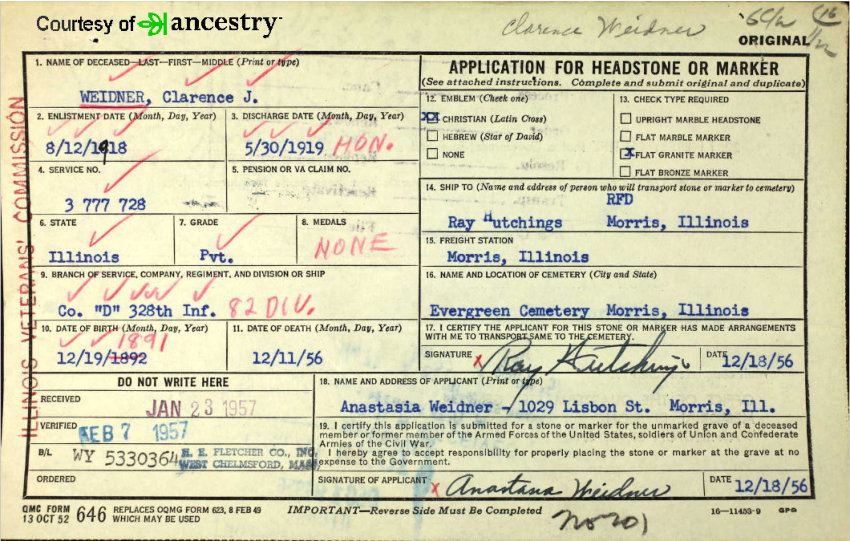 Courtesy of ancestry
Clarence Weidner
ORIGINAL
ILLINOIS VETERANS' COMMISSION
1. NAME OF DECEASED—LAST—FIRST—MIDDLE (Print or type)
WEIDNER, Clarence J.
2. ENLISTMENT DATE (Month, Day, Year)
8/12/1918
3. DISCHARGE DATE (Month, Day, Year)
5/30/1919 HON.
4. SERVICE NO.
3 777 728
5. PENSION OR VA CLAIM NO.
6. STATE
Illinois
7. GRADE
Pvt.
8. MEDALS
NONE
9. BRANCH OF SERVICE, COMPANY, REGIMENT, AND DIVISION OR SHIP
Co. "D" 328th Inf. 82 DIV.
10. DATE OF BIRTH (Month, Day, Year)
1891
12/19/1892
11. DATE OF DEATH (Month, Day, Year)
12/11/56
APPLICATION FOR HEADSTONE OR MARKER
(See attached instructions. Complete and submit original and duplicate)
12. EMBLEM (Check one)
XX CHRISTIAN (Latin Cross)
HEBREW (Star of David)
NONE
13. CHECK TYPE REQUIRED
UPRIGHT MARBLE HEADSTONE
FLAT MARBLE MARKER
X FLAT GRANITE MARKER
FLAT BRONZE MARKER
14. SHIP TO (Name and address of person who will transport stone or marker to cemetery)
RFD
Ray Hutchings Morris, Illinois
15. FREIGHT STATION
Morris, Illinois
16. NAME AND LOCATION OF CEMETERY (City and State)
Evergreen Cemetery Morris, Illinois
17. I CERTIFY THE APPLICANT FOR THIS STONE OR MARKER HAS MADE ARRANGEMENTS
WITH ME TO TRANSPORT SAME TO THE CEMETERY.
SIGNATURE X Ray Hutchings DATE 12/18/56
DO NOT WRITE HERE
RECEIVED
JAN 23 1957
VERIFIED
FEB 7 1957
B/L WY 5330364 H. E. FLETCHER CO., INC.
WEST CHELMSFORD, MASS.
ORDERED
18. NAME AND ADDRESS OF APPLICANT (Print or type)
Anastasia Weidner - 1029 Lisbon St. Morris, Ill.
19. I certify this application is submitted for a stone or marker for the unmarked grave of a deceased
member or former member of the Armed Forces of the United States, soldiers of Union and Confederate
Armies of the Civil War.
I hereby agree to accept responsibility for properly placing the stone or marker at the grave at no
expense to the Government.
SIGNATURE OF APPLICANT X Anastasia Weidner DATE 12/18/56
QMC FORM
13 OCT 52 646 REPLACES OQMG FORM 623, 8 FEB 49
WHICH MAY BE USED
IMPORTANT—Reverse Side Must Be Completed
16—11453-9 GPO